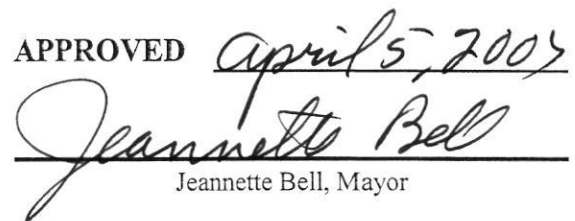 APPROVED April 5,
Jeannette Bell
Jeannette Bell, Mayor